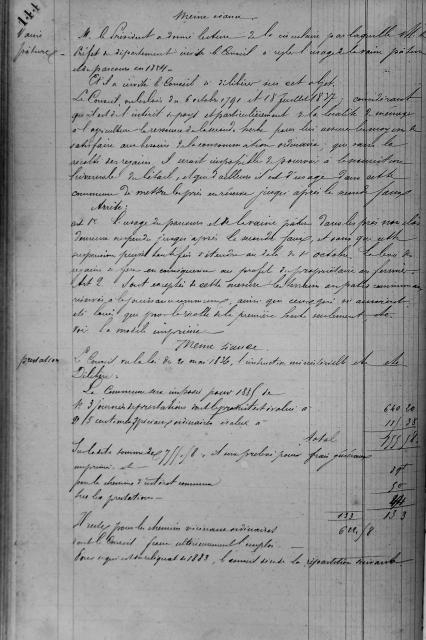 144
Même séance
Vaine pâture
M. le Président a donné lecture de la circulaire par laquelle M. le
Préfet du département invite le Conseil à régler l'usage de la vaine pâture
et du parcours en 1884.
Et il a invité le Conseil à délibérer sur cet objet.
Le Conseil, vu les lois du 6 octobre 1791 et 18 juillet 1837, considérant
qu'il est de l'intérêt du pays et particulièrement de la localité de ménager
à l'agriculture la ressource de la seconde herbe pour lui assurer le moyen de
satisfaire aux besoins de la consommation ordinaire, que sans la
récolte des regains, il serait impossible de pourvoir à la nourriture
hivernale du bétail, et que d'ailleurs il est d'usage dans cette
commune de mettre les prés en réserve jusqu'après la seconde faux
Arrête:
art 1er L'usage du parcours et de la vaine pâture dans les prés non clos
demeure suspendu jusqu'après la seconde faux, et sans que cette
suspension puisse toutefois s'étendre au delà du 1er octobre. Le temps de
regains se fera en conséquence au profit du propriétaire ou fermier.
Art 2. Sont exceptés de cette mesure les terrains en pâtis communaux
réservés à la jouissance commune, ainsi que ceux qui
que pour la récolte de la première herbe seulement
voir le modèle imprimé
Même séance
prestation
Le Conseil vu la loi du 21 mai 1836, l'instruction ministérielle
Délibère:
La Commune sera imposée pour 1885 de
1° 3 journées de prestations dont le produit est évalué à 640 20
2° 5 centimes spéciaux ordinaires évalués à 115 38
total 755 58
Sur ladite somme de 755,58, il sera prélevé pour frais généraux
imprimés et
pour les chemins d'intérêt commun 50
Sur les prestations
133 133
Il reste pour les chemins vicinaux ordinaires 622,58
dont le Conseil fera ultérieurement l'emploi.
reliquat de 1883, le conseil décide la répartition suivante